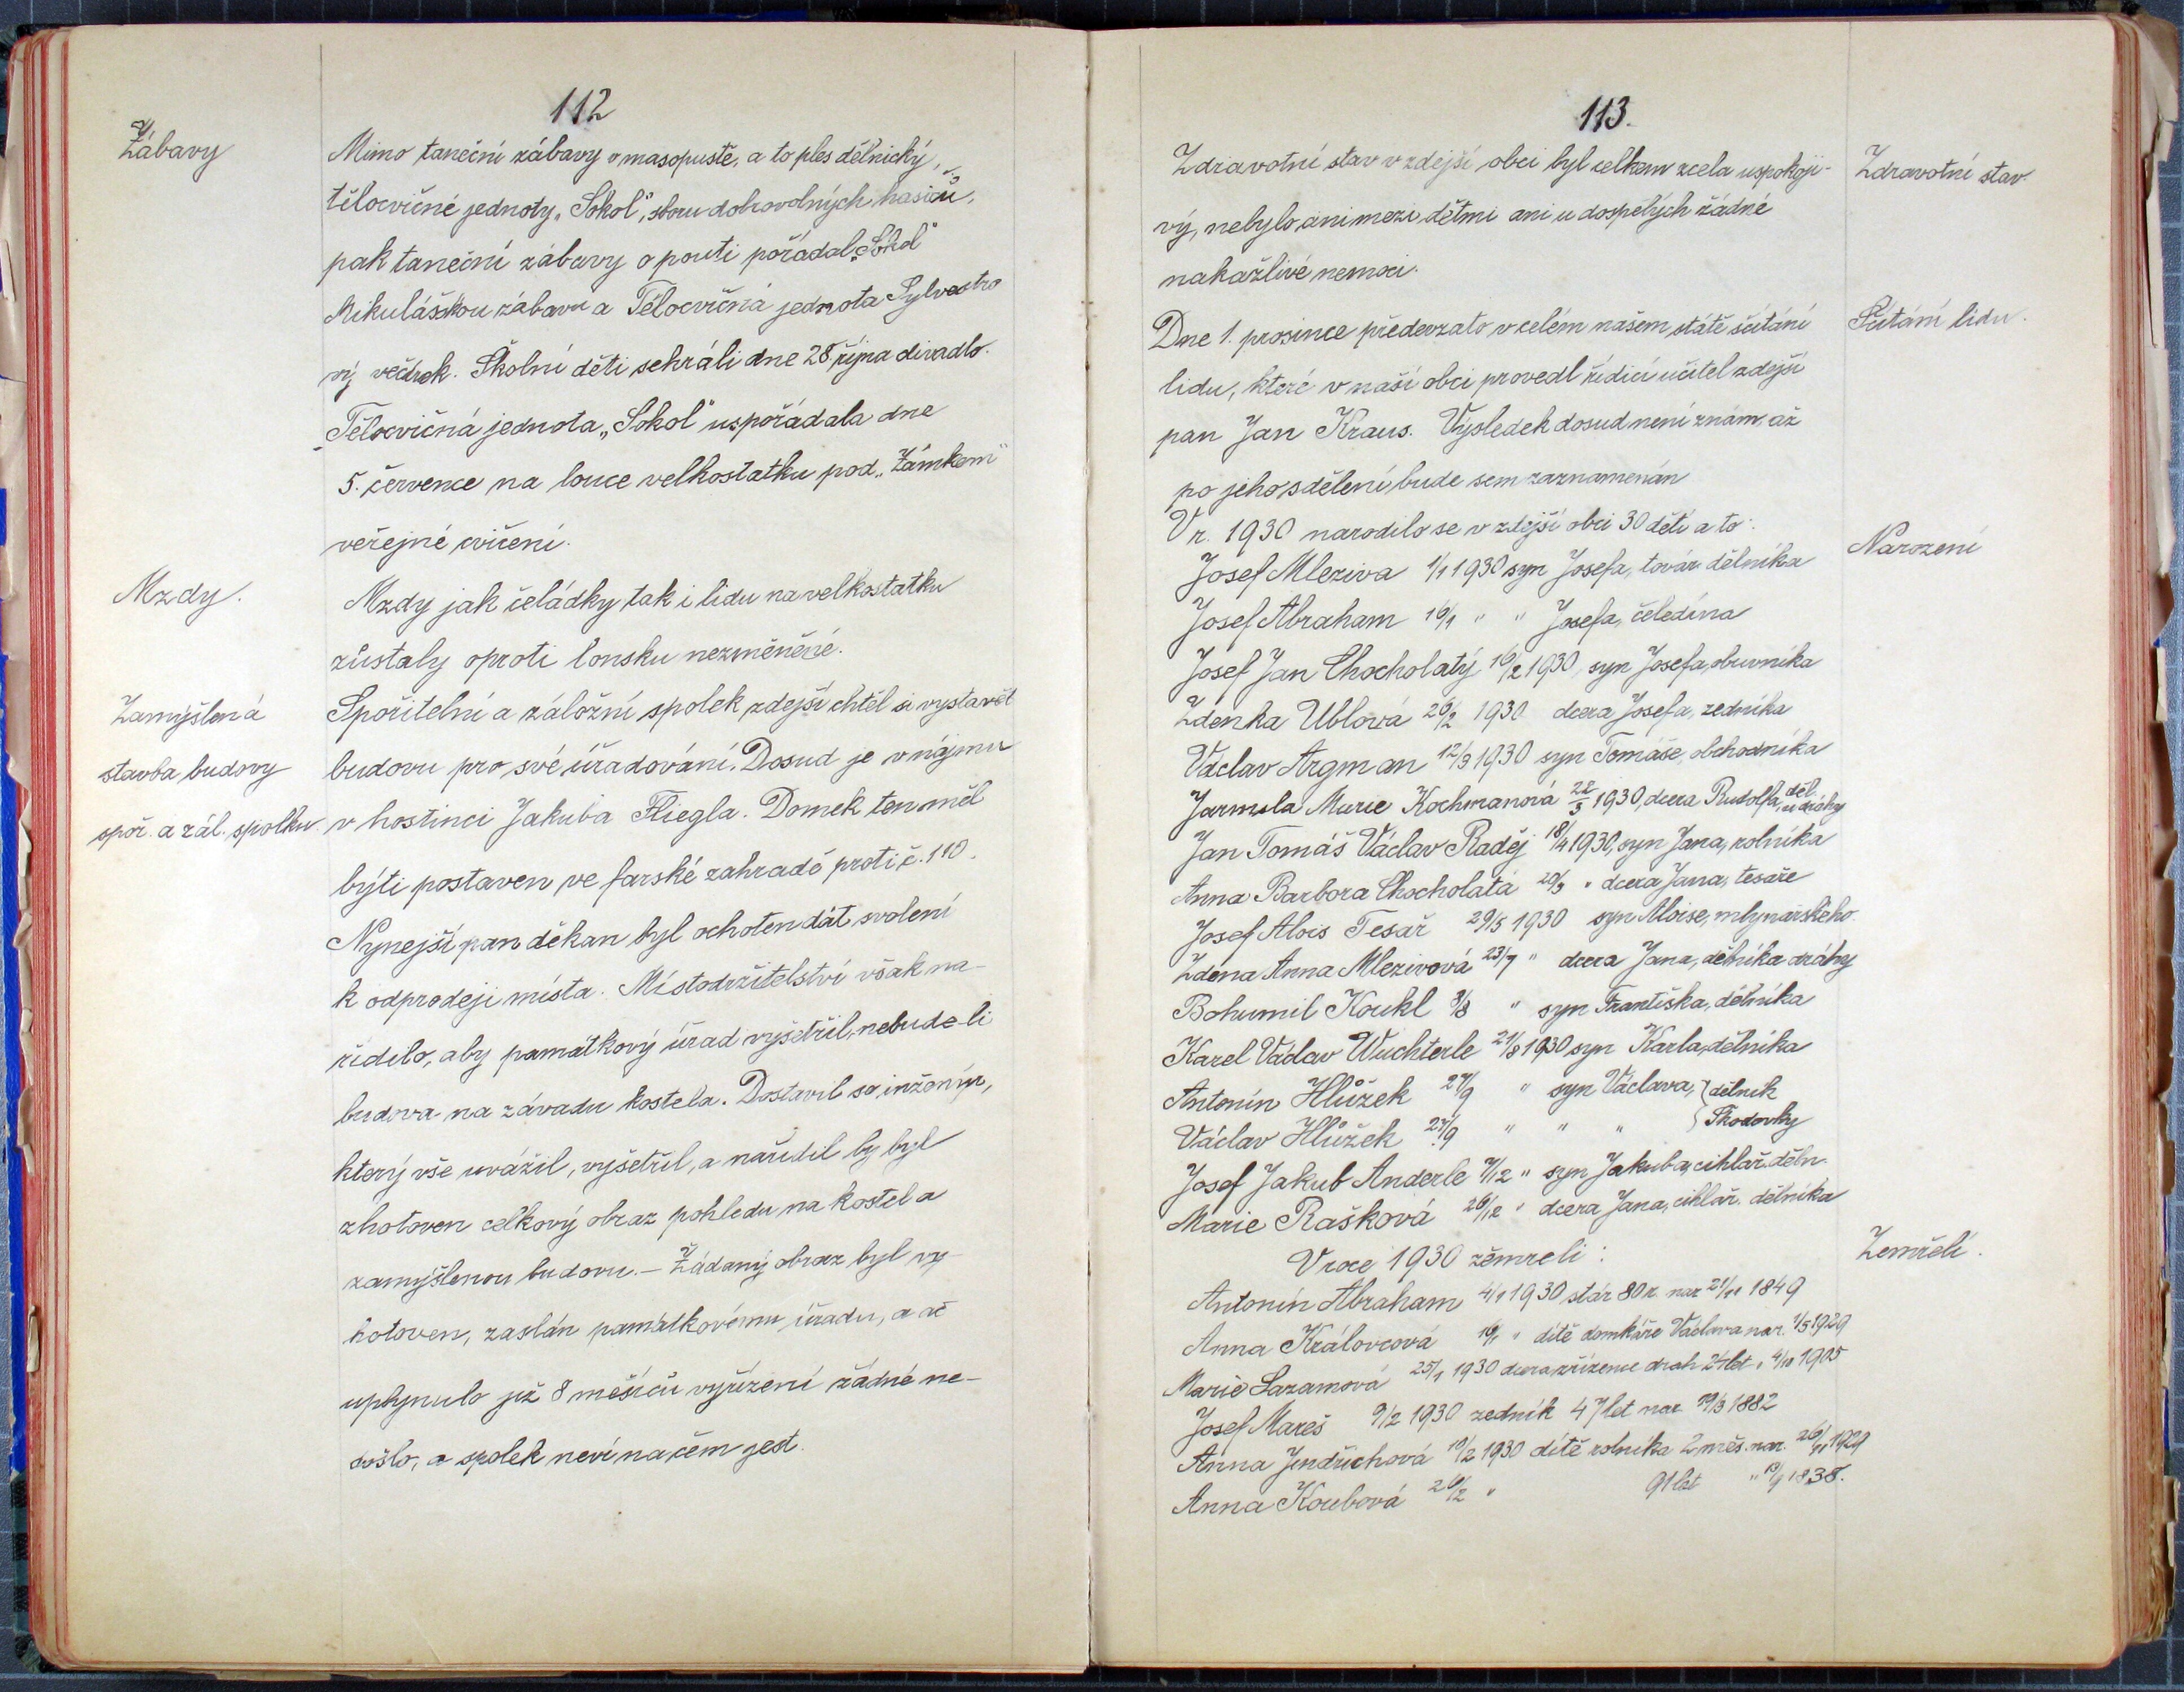 112
Zábavy
Mimo taneční zábavy o masopustě, a to ples dělnický,
tělocvičné jednoty „Sokol", sboru dobrovolných hasičů,
pak taneční zábavy o pouti pořádal „Sokol"
Mikulášskou zábavu a Tělocvičná jednota Sylvestro
vý večírek. Školní děti sehráli dne 28. října divadlo.
Tělocvičná jednota „Sokol" uspořádala dne
5. července na louce velkostatku pod „Zámkem"
veřejné cvičení.
Mzdy.
Mzdy jak čeládky tak i lidu na velkostatku
zůstaly oproti lonsku nezměněné.
Zamýšlená
stavba budovy
spoř. a zál. spolku.
Spořitelní a záložní spolek zdejší chtěl si vystavět
budovu pro své úřadování. Dosud je v nájmu
v hostinci Jakuba Fliegla. Domek ten měl
býti postaven ve farské zahradě proti č. 110.
Nynejší pan děkan byl ochoten dát svolení
k odprodeji místa. Místodržitelství však na-
řídilo, aby památkový úřad vyšetřil, nebude-li
budova na závadu kostela. Dostavil se inženýr,
který vše uvážil, vyšetřil, a nařídil by byl
zhotoven celkový obraz pohledu na kostel a
zamýšlenou budovu. – Žádaný obraz byl vy
hotoven, zaslán památkovému úřadu, a ač
uplynulo již 8 měsíců vyřízení žádné ne-
došlo, a spolek neví na čem jest.
113.
Zdravotní stav v zdejší obci byl celkem zcela uspokoji-
vý, nebylo ani mezi dětmi ani u dospělých žádné
nakažlivé nemoci.
Zdravotní stav.
Dne 1. prosince předevzato v celém našem státě sčítání
lidu, které v naší obci provedl řídící učitel zdejší
pan Jan Kraus. Výsledek dosud není znám, až
po jeho sdělení bude sem zaznamenán
Sčítání lidu.
V r. 1930 narodilo se v zdejší obci 30 dětí a to:
Narození
Josef Mleziva 1/1 1930 syn Josefa, továr. dělníka
Josef Abraham 16/1 " " Josefa, čeledína
Josef Jan Chocholatý 16/2 1930, syn Josefa, obuvníka
Zdenka Ublová 26/2 1930 dcera Josefa, zedníka
Václav Argman 12/3 1930 syn Tomáše, obchodníka
Jarmila Marie Kochmanová 22/3 1930, dcera Rudolfa, děl. u dráhy
Jan Tomáš Václav Raděj 18/4 1930, syn Jana, rolníka
Anna Barbora Chocholatá " dcera Jana, tesaře
Josef Alois Tesař 29/5 1930 syn Aloise, mlynářského
Zdena Anna Mlezivová 23/7 " dcera Jana, dělníka dráhy
Bohumil Koukl " syn Františka, dělníka
Karel Václav Wuchterle 21/8 1930 syn Karla, dělníka
Antonín Hlůžek 27/9 " syn Václava, } dělník
Václav Hlůžek 27/9 " " " } Škodovky
Josef Jakub Anderle 7/12 " syn Jakuba, cihlář. děln.
Marie Rašková 26/12 " dcera Jana, cihlář. dělníka
V roce 1930 zěmreli:
Zemřelí.
Antonín Abraham 4/1 1930 stár 80 r. nar 21/11 1849
Anna Královcová " dítě domkáře Václava nar. 1/5 1929
Marie Sazamová 25/1 1930 dcera zřízence drah 24 let " 4/10 1905
Josef Mareš 9/2 1930 zedník 47 let nar. 19/3 1882
Anna Jindřichová 10/2 1930 dítě rolníka 2 měs. nar. 26/11 1929
Anna Koubová 26/2 " 91 let " 1838.